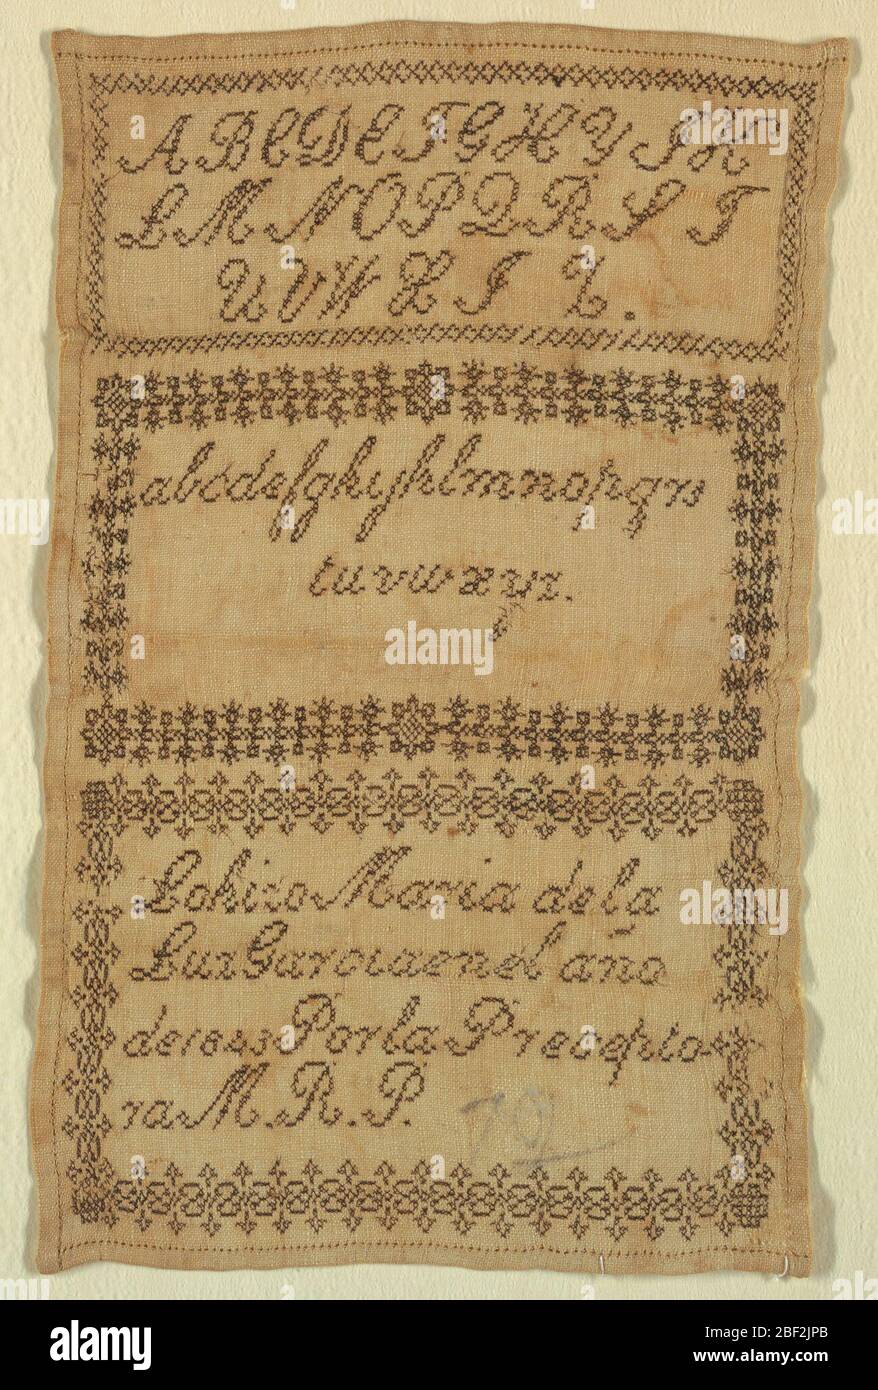 A B C D E F G H Y J K
L M N O P Q R S T
U V W X I Z.
abcdefghyjklmnopqrs
tuvwxyz.
Lohizo Maria de la
Luz Garciaenel año
de 1843 Porla Precepto
ra M. R. P.
79
alamy
Image ID: 2BF2JPB
www.alamy.com